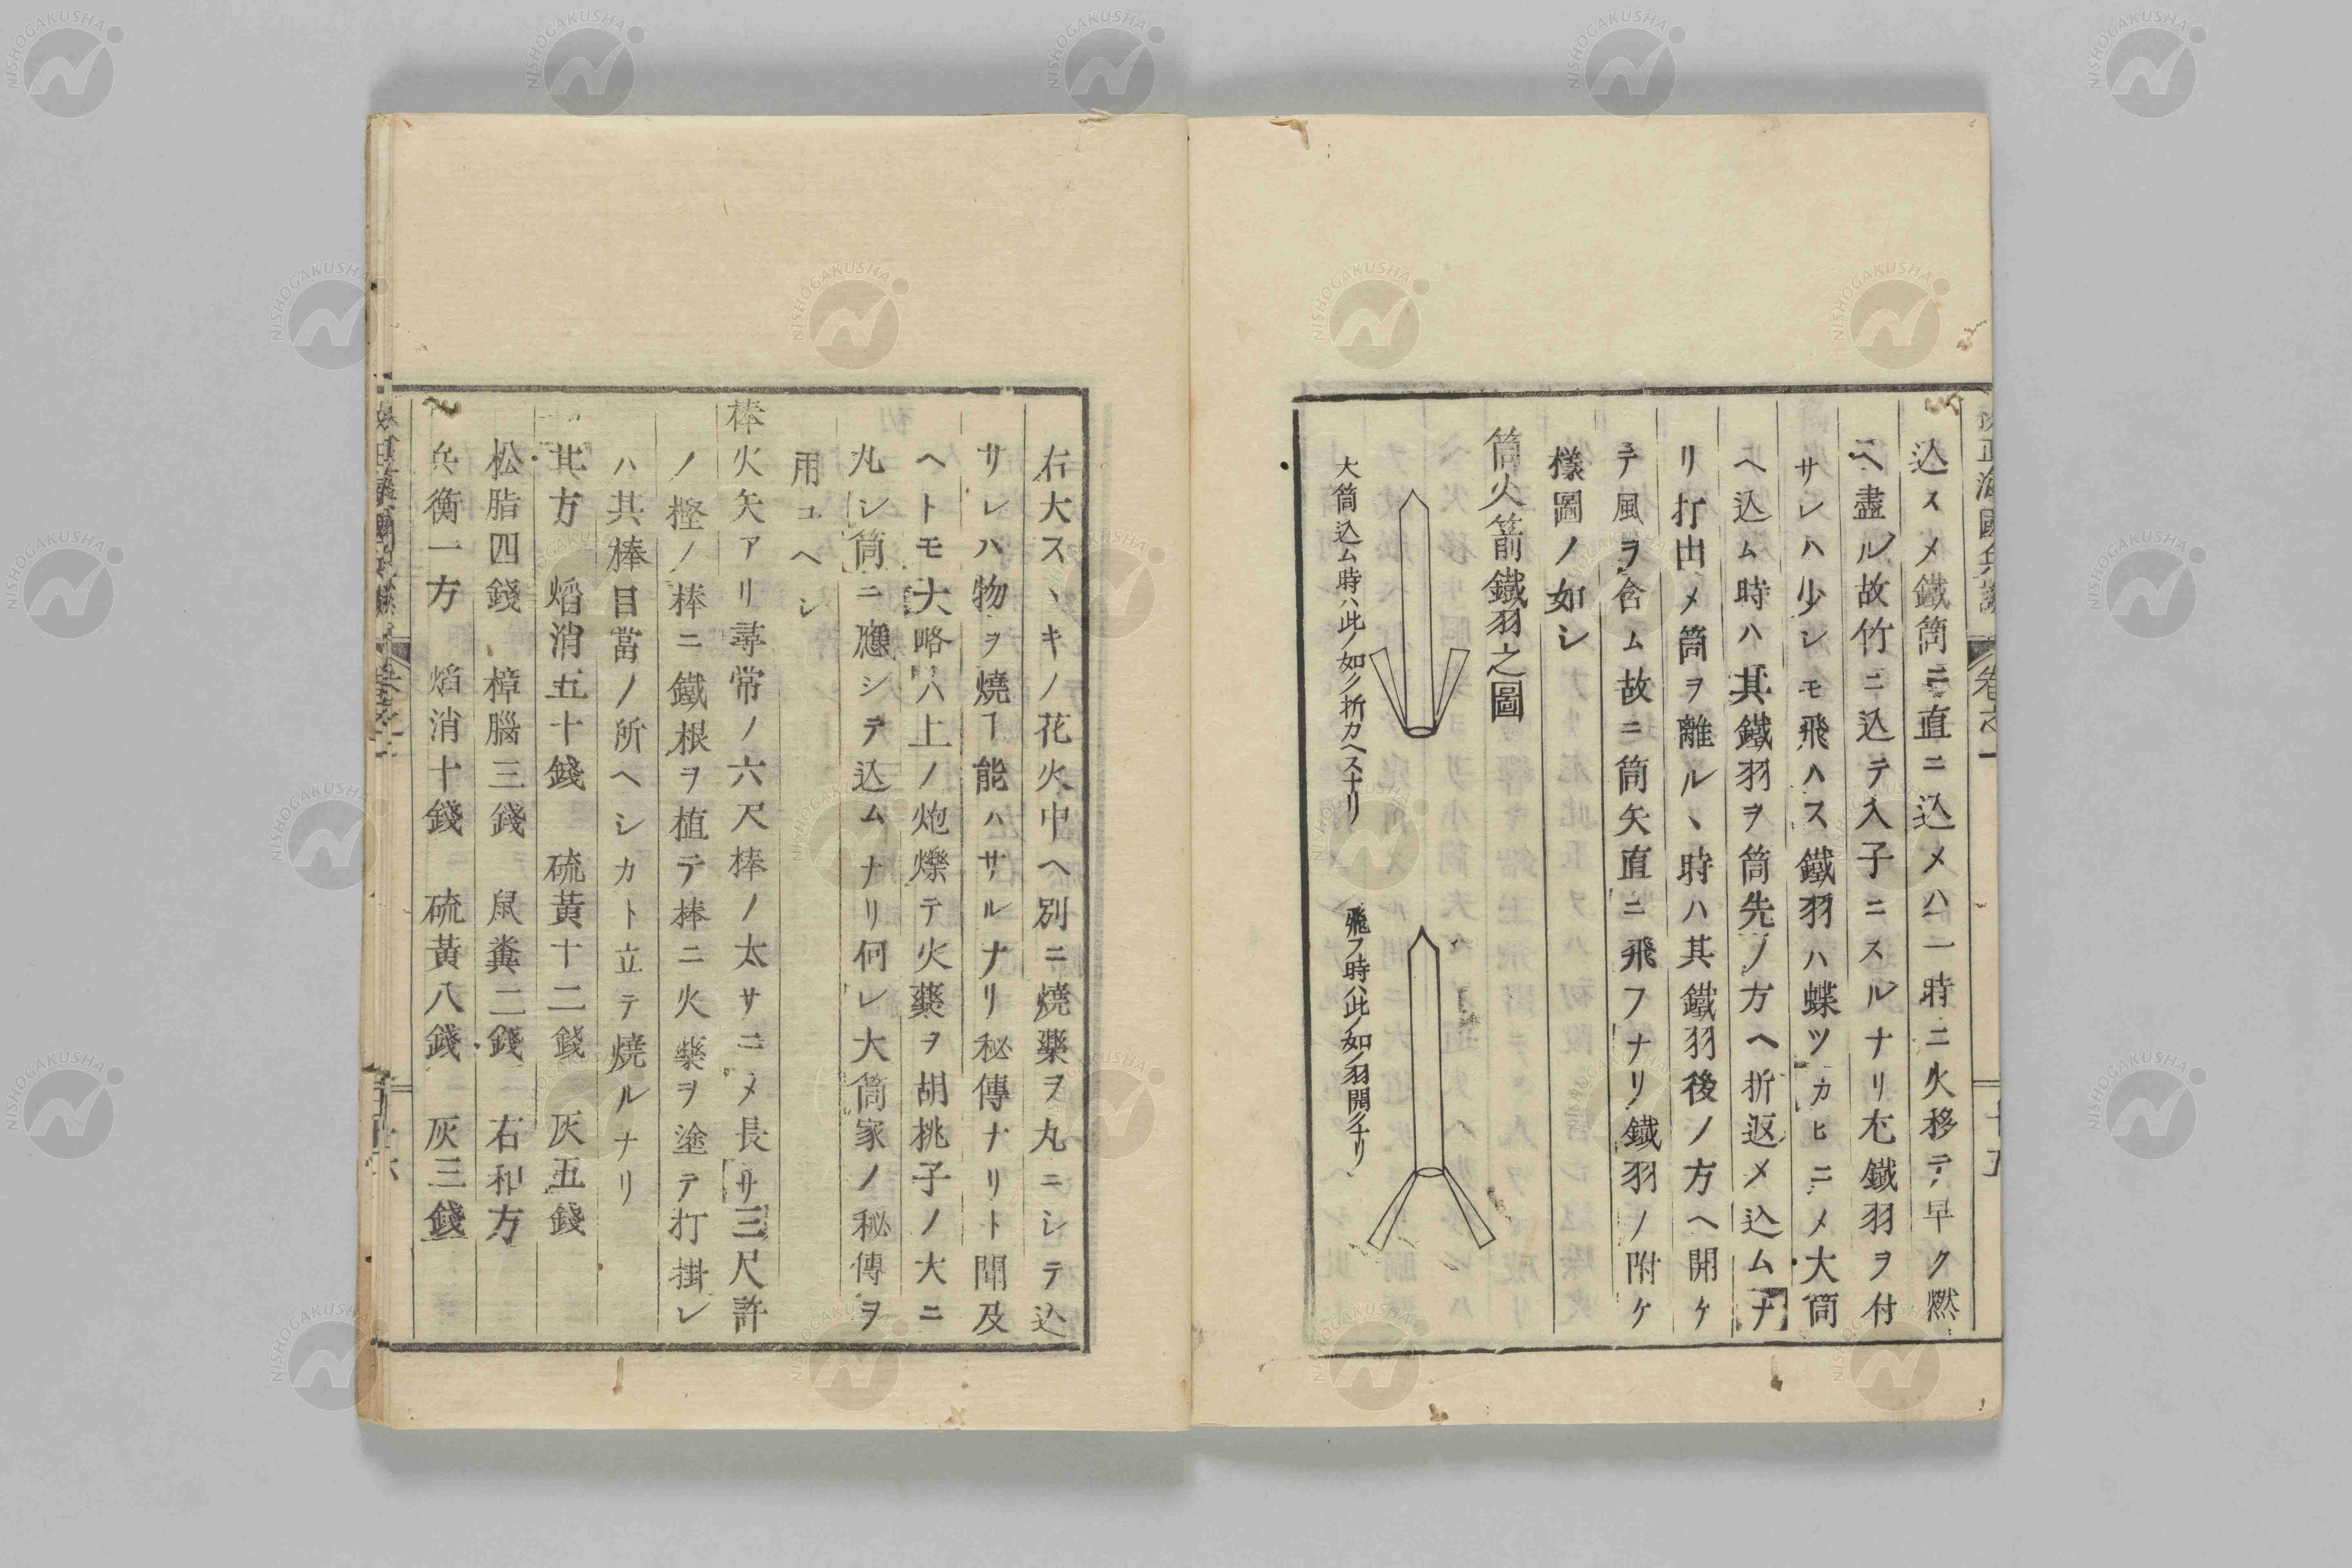 込スメ鐵筒ニ直ニ込メハ一時ニ火移テ早ク燃
ヘ盡ル故竹ニ込テ入子ニスルナリ尤鐵羽ヲ付
サレハ少シモ飛ハス鐵羽ハ蝶ツカヒニメ大筒
ヘ込ム時ハ其鐵羽ヲ筒先ノ方ヘ折返メ込ムナ
リ打出メ筒ヲ離ルヽ時ハ其鐵羽後ノ方ヘ開ケ
テ風ヲ含ム故ニ筒矢直ニ飛フナリ鐵羽ノ附ケ
樣圖ノ如シ
筒火箭鐵羽之圖
大筒込ム時ハ此ノ如ク折カヘスナリ
飛フ時ハ此ノ如ク羽開クナリ
卷之一
右大スヽキノ花火中ヘ別ニ燒藥ヲ丸ニシテ込
サレハ物ヲ燒ヿ能ハサルナリ秘傳ナリト聞及
ヘトモ大略ハ上ノ炮爍テ火藥ヲ胡桃子ノ大ニ
丸シ筒ニ應シテ込ムナリ何レ大筒家ノ秘傳ヲ
用ユヘシ
棒火矢アリ尋常ノ六尺棒ノ太サニメ長サ三尺許
ノ樫ノ棒ニ鐵根ヲ植テ棒ニ火藥ヲ塗テ打掛レ
ハ其棒目當ノ所ヘシカト立テ燒ルナリ
其方 焰消五十錢 硫黄十二錢 灰五錢
松脂四錢 樟腦三錢 鼠糞二錢 右和方
兵衡一方 焰消十錢 硫黄八錢 灰三錢
NISHOGAKUSHA